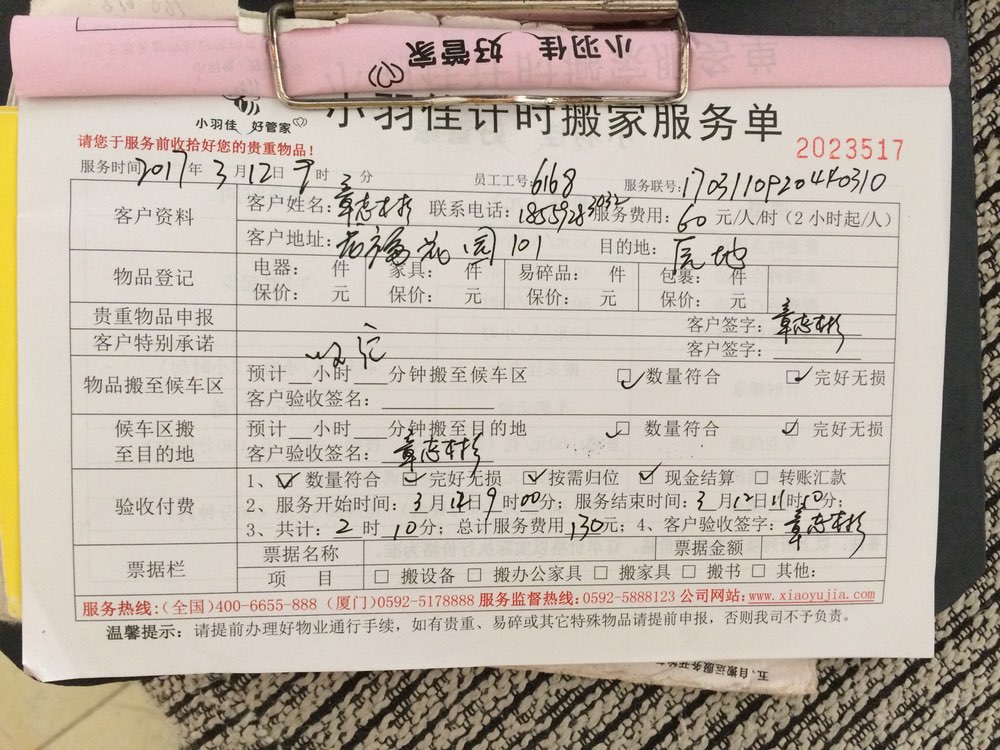 小羽佳 好管家
小羽佳 好管家
小羽佳计时搬家服务单
请您于服务前收拾好您的贵重物品！
2023517
服务时间2017年3月12日9时 分 员工工号:6168 服务联号:1703110920440310
客户资料 客户姓名:章志彬 联系电话: 服务费用:60元/人/时(2小时起/人)
客户地址: 花园101 目的地:
物品登记 电器: 件 家具: 件 易碎品: 件 包裹: 件
保价: 元 保价: 元 保价: 元 保价: 元
贵重物品申报 客户签字:章志彬
客户特别承诺 客户签字:
物品搬至候车区 预计__小时__分钟搬至候车区 数量符合 完好无损
客户验收签名:
候车区搬至目的地 预计__小时__分钟搬至目的地 数量符合 完好无损
客户验收签名:章志彬
验收付费 1、数量符合 完好无损 按需归位 现金结算 转账汇款
2、服务开始时间:3月12日9时00分; 服务结束时间:3月12日11时10分;
3、共计:2时10分; 总计服务费用130元; 4、客户验收签字:章志彬
票据栏 票据名称 票据金额
项 目 搬设备 搬办公家具 搬家具 搬书 其他:
服务热线:(全国)400-6655-888 (厦门)0592-5178888 服务监督热线:0592-5888123 公司网站:www.xiaoyujia.com
温馨提示: 请提前办理好物业通行手续，如有贵重、易碎或其它特殊物品请提前申报，否则我司不予负责。